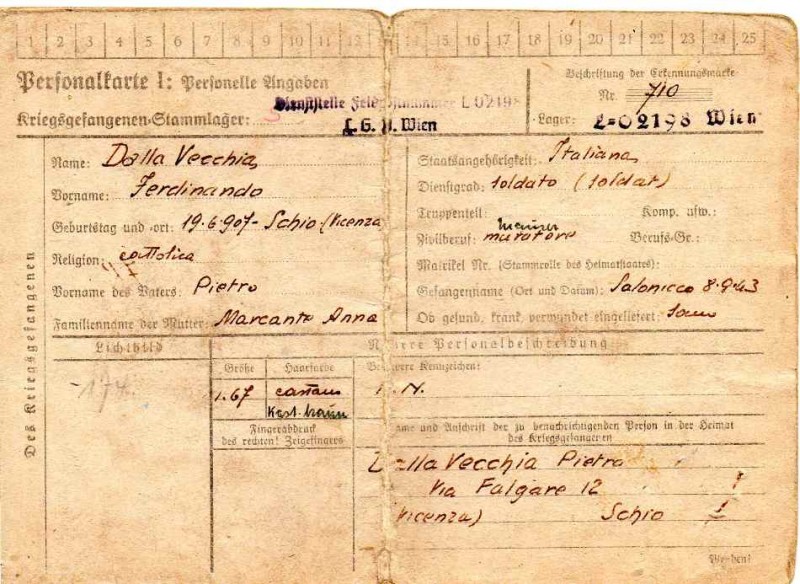 1 2 3 4 5 6 7 8 9 10 11 12 14 15 16 17 18 19 20 21 22 23 24 25
Personalkarte I: Personelle Angaben
Kriegsgefangenen-Stammlager:
Dienststelle Feldpostnummer L 02198
L. G. P. Wien
Beschriftung der Erkennungsmarke
Nr. 710
Lager: L=02198 Wien
Des Kriegsgefangenen
Name: Dalla Vecchia
Vorname: Ferdinando
Geburtstag und -ort: 19.6.907 - Schio (Vicenza
Religion: cattolica
Vorname des Vaters: Pietro
Familienname der Mutter: Marcante Anna
Staatsangehörigkeit: Italiana
Dienstgrad: soldato (soldat)
Truppenteil: Komp. usw.:
Maurer
Zivilberuf: muratore Berufs-Gr.:
Matrikel Nr. (Stammrolle des Heimatstaates):
Gefangennahme (Ort und Datum): Salonicco 8.9.43
Ob gesund, krank, verwundet eingeliefert: sano
Lichtbild
174
Nähere Personalbeschreibung
Größe Haarfarbe
1.67 castano
Kast. braun
Fingerabdruck
des rechten! Zeigefingers
Besondere Kennzeichen:
N.
Name und Anschrift der zu benachrichtigenden Person in der Heimat
des Kriegsgefangenen
Dalla Vecchia Pietro
Via Falgare 12
Vicenza) Schio